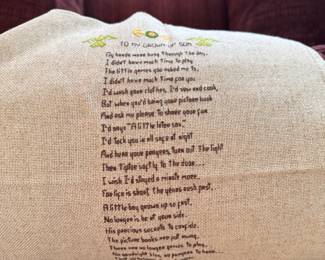 TO MY GROWN UP SON
My hands were busy through the day,
I didn't have much time to play
The little games you asked me to,
I didn't have much time for you
I'd wash your clothes, I'd sew and cook,
But when you'd bring your picture book
And ask me please to share your fun
I'd say "A little later son,"
I'd tuck you in all safe at night
And hear your prayers, turn out the light
Then tiptoe softly to the door...
I wish I'd stayed a minute more.
For life is short the years rush past,
A little boy grows up so fast,
No longer is he at your side.
His precious secrets to confide.
The picture books are put away,
There are no longer games to play,
No goodnight kiss, no prayers to hear